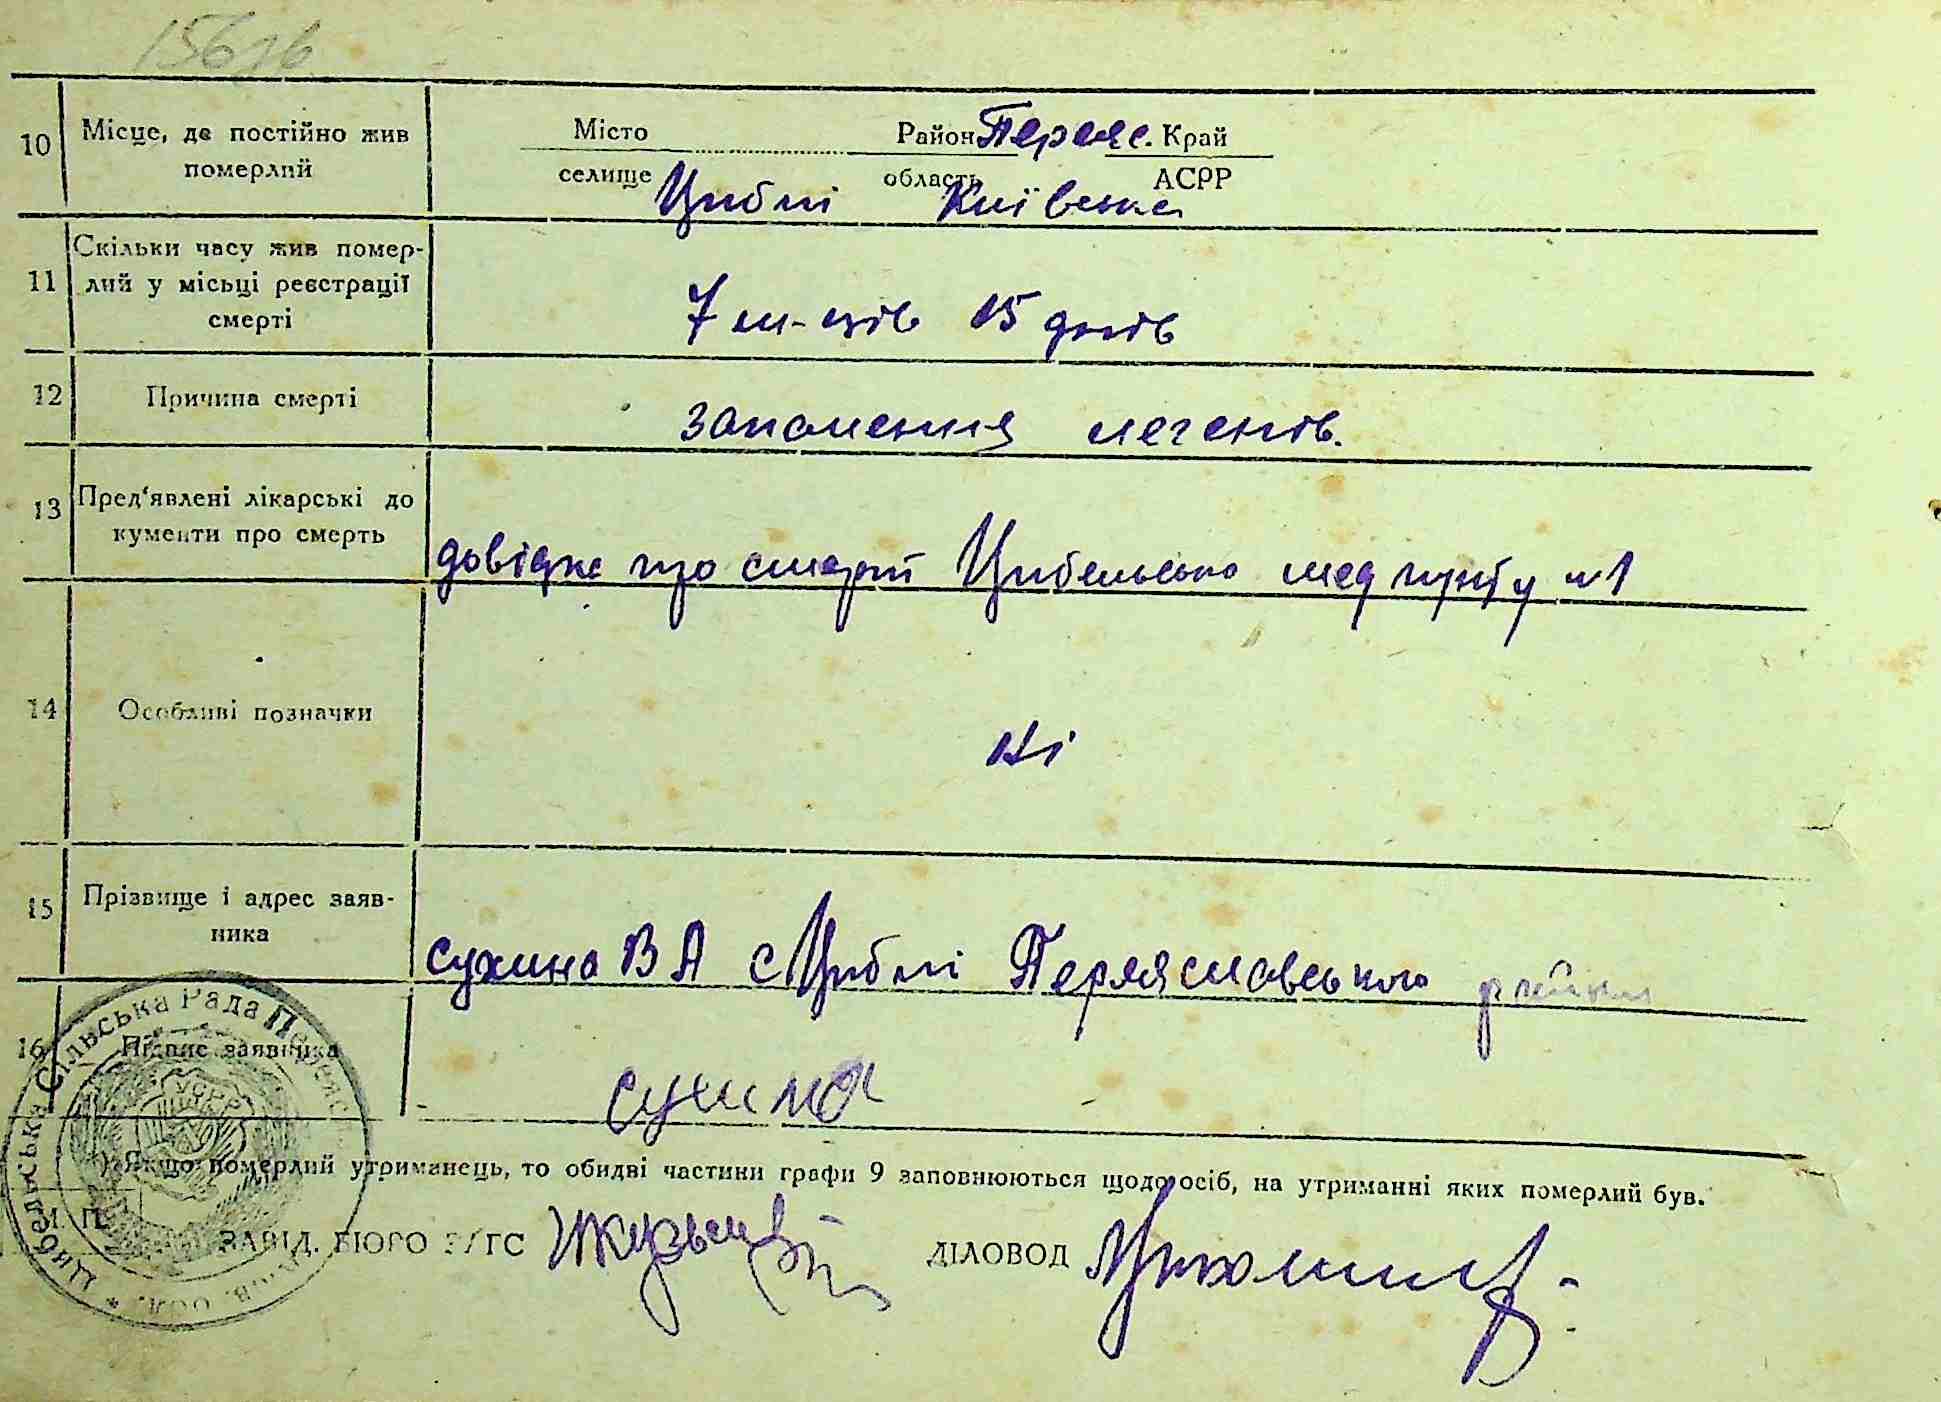 10 Місце, де постійно жив Місто Район Переяс. Край
померлий селище Циблі область Київська АСРР
Скільки часу жив помер-
11 лий у місьці реєстрації 7 м-ців 15 днів
смерті
12 Причина смерті запалення легенів.
13 Пред'явлені лікарські до
кументи про смерть довідка про смерт Цибельсько мед пункту №1
14 Особливі позначки ні
15 Прізвище і адрес заяв-
ника Сухина В А с Циблі Переяславського району
16 Підпис заявника Сухина
*) Якщо померлий утриманець, то обидві частини графи 9 заповнюються щодо осіб, на утриманні яких померлий був.
М. П.
ЗАВІД. БЮРО ЗАГС ДІЛОВОД
Цибельська Сільська Рада Переяс
УСРР